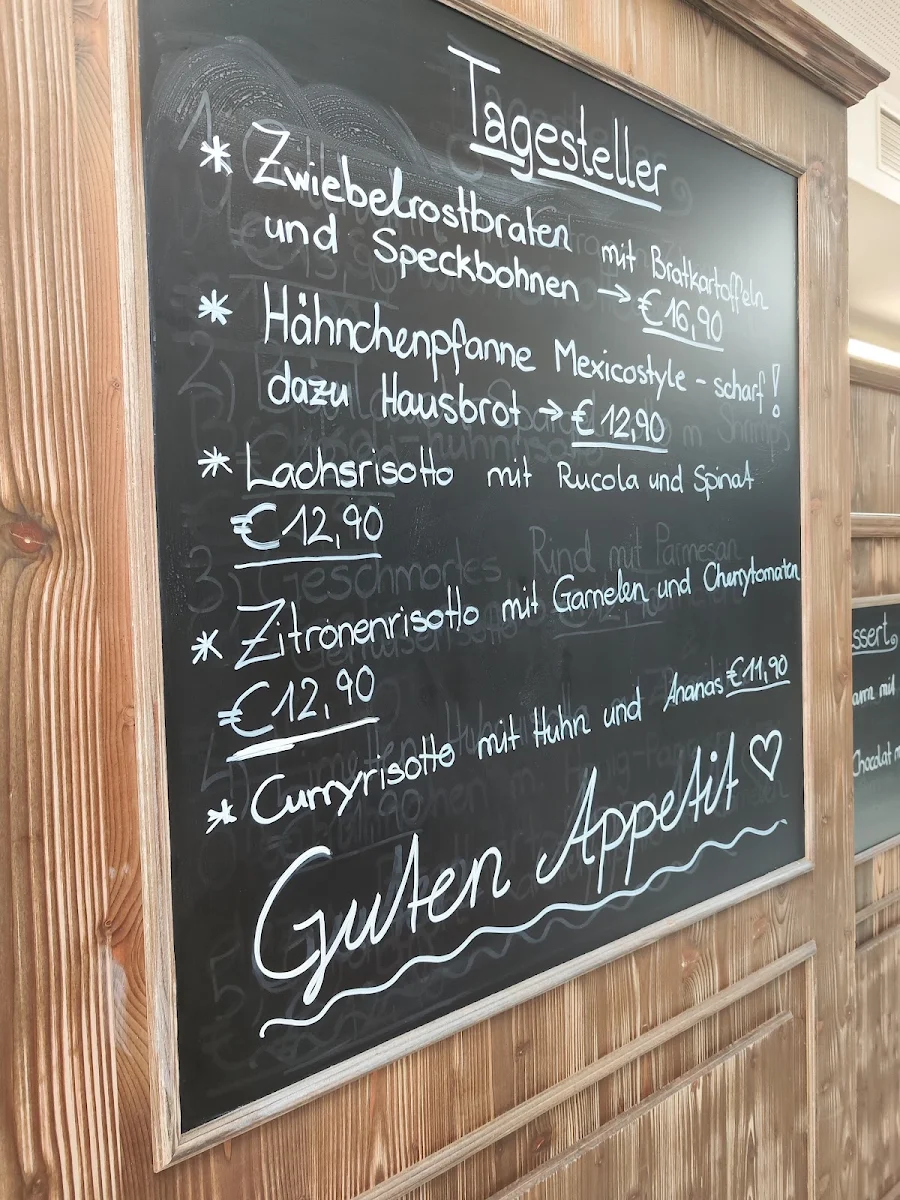 Tagesteller
* Zwiebelrostbraten mit Bratkartoffeln
und Speckbohnen → €16,90
* Hähnchenpfanne Mexicostyle - scharf!
dazu Hausbrot → € 12,90
* Lachsrisotto mit Rucola und Spinat
€ 12,90
* Zitronenrisotto mit Garnelen und Cherrytomaten
€12,90
* Curryrisotto mit Huhn und Ananas €11,90
Guten Appetit ♡
3) Geschmortes Rind mit Parmesan
ssert
mit
Chocolat